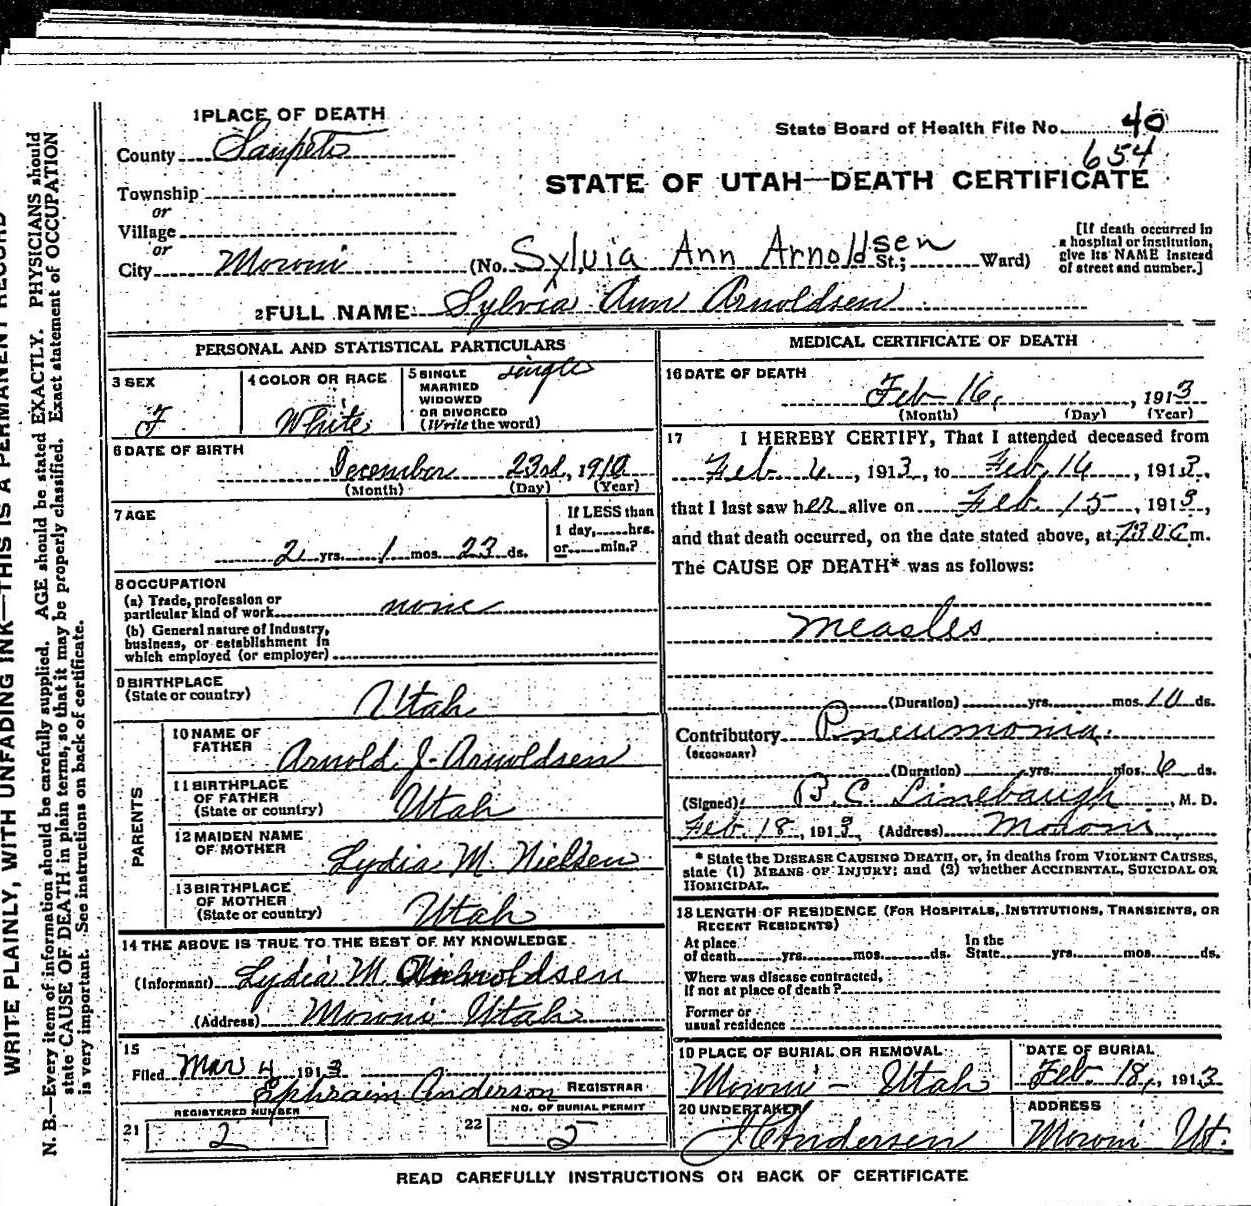 WRITE PLAINLY, WITH UNFADING INK—THIS IS A PERMANENT RECORD
N. B.—Every item of information should be carefully supplied. AGE should be stated EXACTLY. PHYSICIANS should
state CAUSE OF DEATH in plain terms, so that it may be properly classified. Exact statement of OCCUPATION
is very important. See instructions on back of certificate.
1 PLACE OF DEATH
County Sanpete
Township
or
Village
or
City Moroni
State Board of Health File No. 40
654
STATE OF UTAH—DEATH CERTIFICATE
(No. Sylvia Ann Arnoldsen St.; Ward)
[If death occurred in
a hospital or institution,
give its NAME instead
of street and number.]
2 FULL NAME Sylvia Ann Arnoldsen
PERSONAL AND STATISTICAL PARTICULARS
3 SEX
F
4 COLOR OR RACE
White
5 SINGLE
MARRIED
WIDOWED
OR DIVORCED
(Write the word)
single
6 DATE OF BIRTH
December 23rd, 1910
(Month) (Day) (Year)
7 AGE
2 yrs. 1 mos. 23 ds.
If LESS than
1 day, hrs.
or min.?
8 OCCUPATION
(a) Trade, profession or
particular kind of work none
(b) General nature of Industry,
business, or establishment in
which employed (or employer)
9 BIRTHPLACE
(State or country)
Utah
PARENTS
10 NAME OF
FATHER
Arnold J. Arnoldsen
11 BIRTHPLACE
OF FATHER
(State or country)
Utah
12 MAIDEN NAME
OF MOTHER
Lydia M. Nielsen
13 BIRTHPLACE
OF MOTHER
(State or country)
Utah
14 THE ABOVE IS TRUE TO THE BEST OF MY KNOWLEDGE
(Informant) Lydia M. Arnoldsen
(Address) Moroni Utah
15
Filed Mar 4 1913
Ephraim Anderson REGISTRAR
21 REGISTERED NUMBER
2
22 NO. OF BURIAL PERMIT
2
MEDICAL CERTIFICATE OF DEATH
16 DATE OF DEATH
Feb 16, 1913
(Month) (Day) (Year)
17 I HEREBY CERTIFY, That I attended deceased from
Feb 6, 1913, to Feb. 16, 1913,
that I last saw her alive on Feb. 15, 1913,
and that death occurred, on the date stated above, at m.
The CAUSE OF DEATH* was as follows:
Measles
(Duration) yrs. mos. 10 ds.
Contributory Pneumonia.
(SECONDARY)
(Duration) yrs. mos. 6 ds.
(Signed) B. C. Linebaugh, M. D.
Feb 18, 1913 (Address) Moroni
* State the DISEASE CAUSING DEATH, or, in deaths from VIOLENT CAUSES,
state (1) MEANS OF INJURY; and (2) whether ACCIDENTAL, SUICIDAL OR
HOMICIDAL.
18 LENGTH OF RESIDENCE (FOR HOSPITALS, INSTITUTIONS, TRANSIENTS, OR
RECENT RESIDENTS)
At place
of death yrs. mos. ds.
In the
State yrs. mos. ds.
Where was disease contracted,
if not at place of death?
Former or
usual residence
19 PLACE OF BURIAL OR REMOVAL
Moroni - Utah
DATE OF BURIAL
Feb. 18, 1913
20 UNDERTAKER
J C Andersen
ADDRESS
Moroni Ut.
READ CAREFULLY INSTRUCTIONS ON BACK OF CERTIFICATE